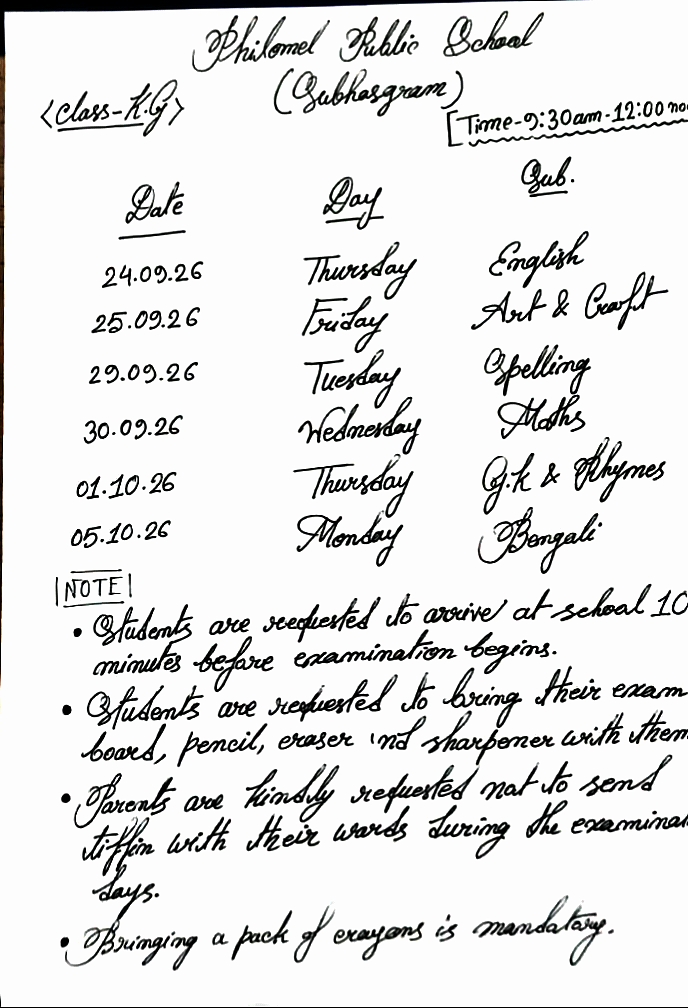 Philomel Public School
(Subhasgram)
<Class-K.G>
[Time-9:30am-12:00 noo
Date Day Sub.
24.09.26 Thursday English
25.09.26 Friday Art & Craft
29.09.26 Tuesday Spelling
30.09.26 Wednesday Maths
01.10.26 Thursday G.k & Rhymes
05.10.26 Monday Bengali
|NOTE|
• Students are requested to arrive at school 10
minutes before examination begins.
• Students are requested to bring their exam
board, pencil, eraser and sharpener with them
• Parents are kindly requested not to send
tiffin with their wards during the examina
days.
• Bringing a pack of crayons is mandatory.